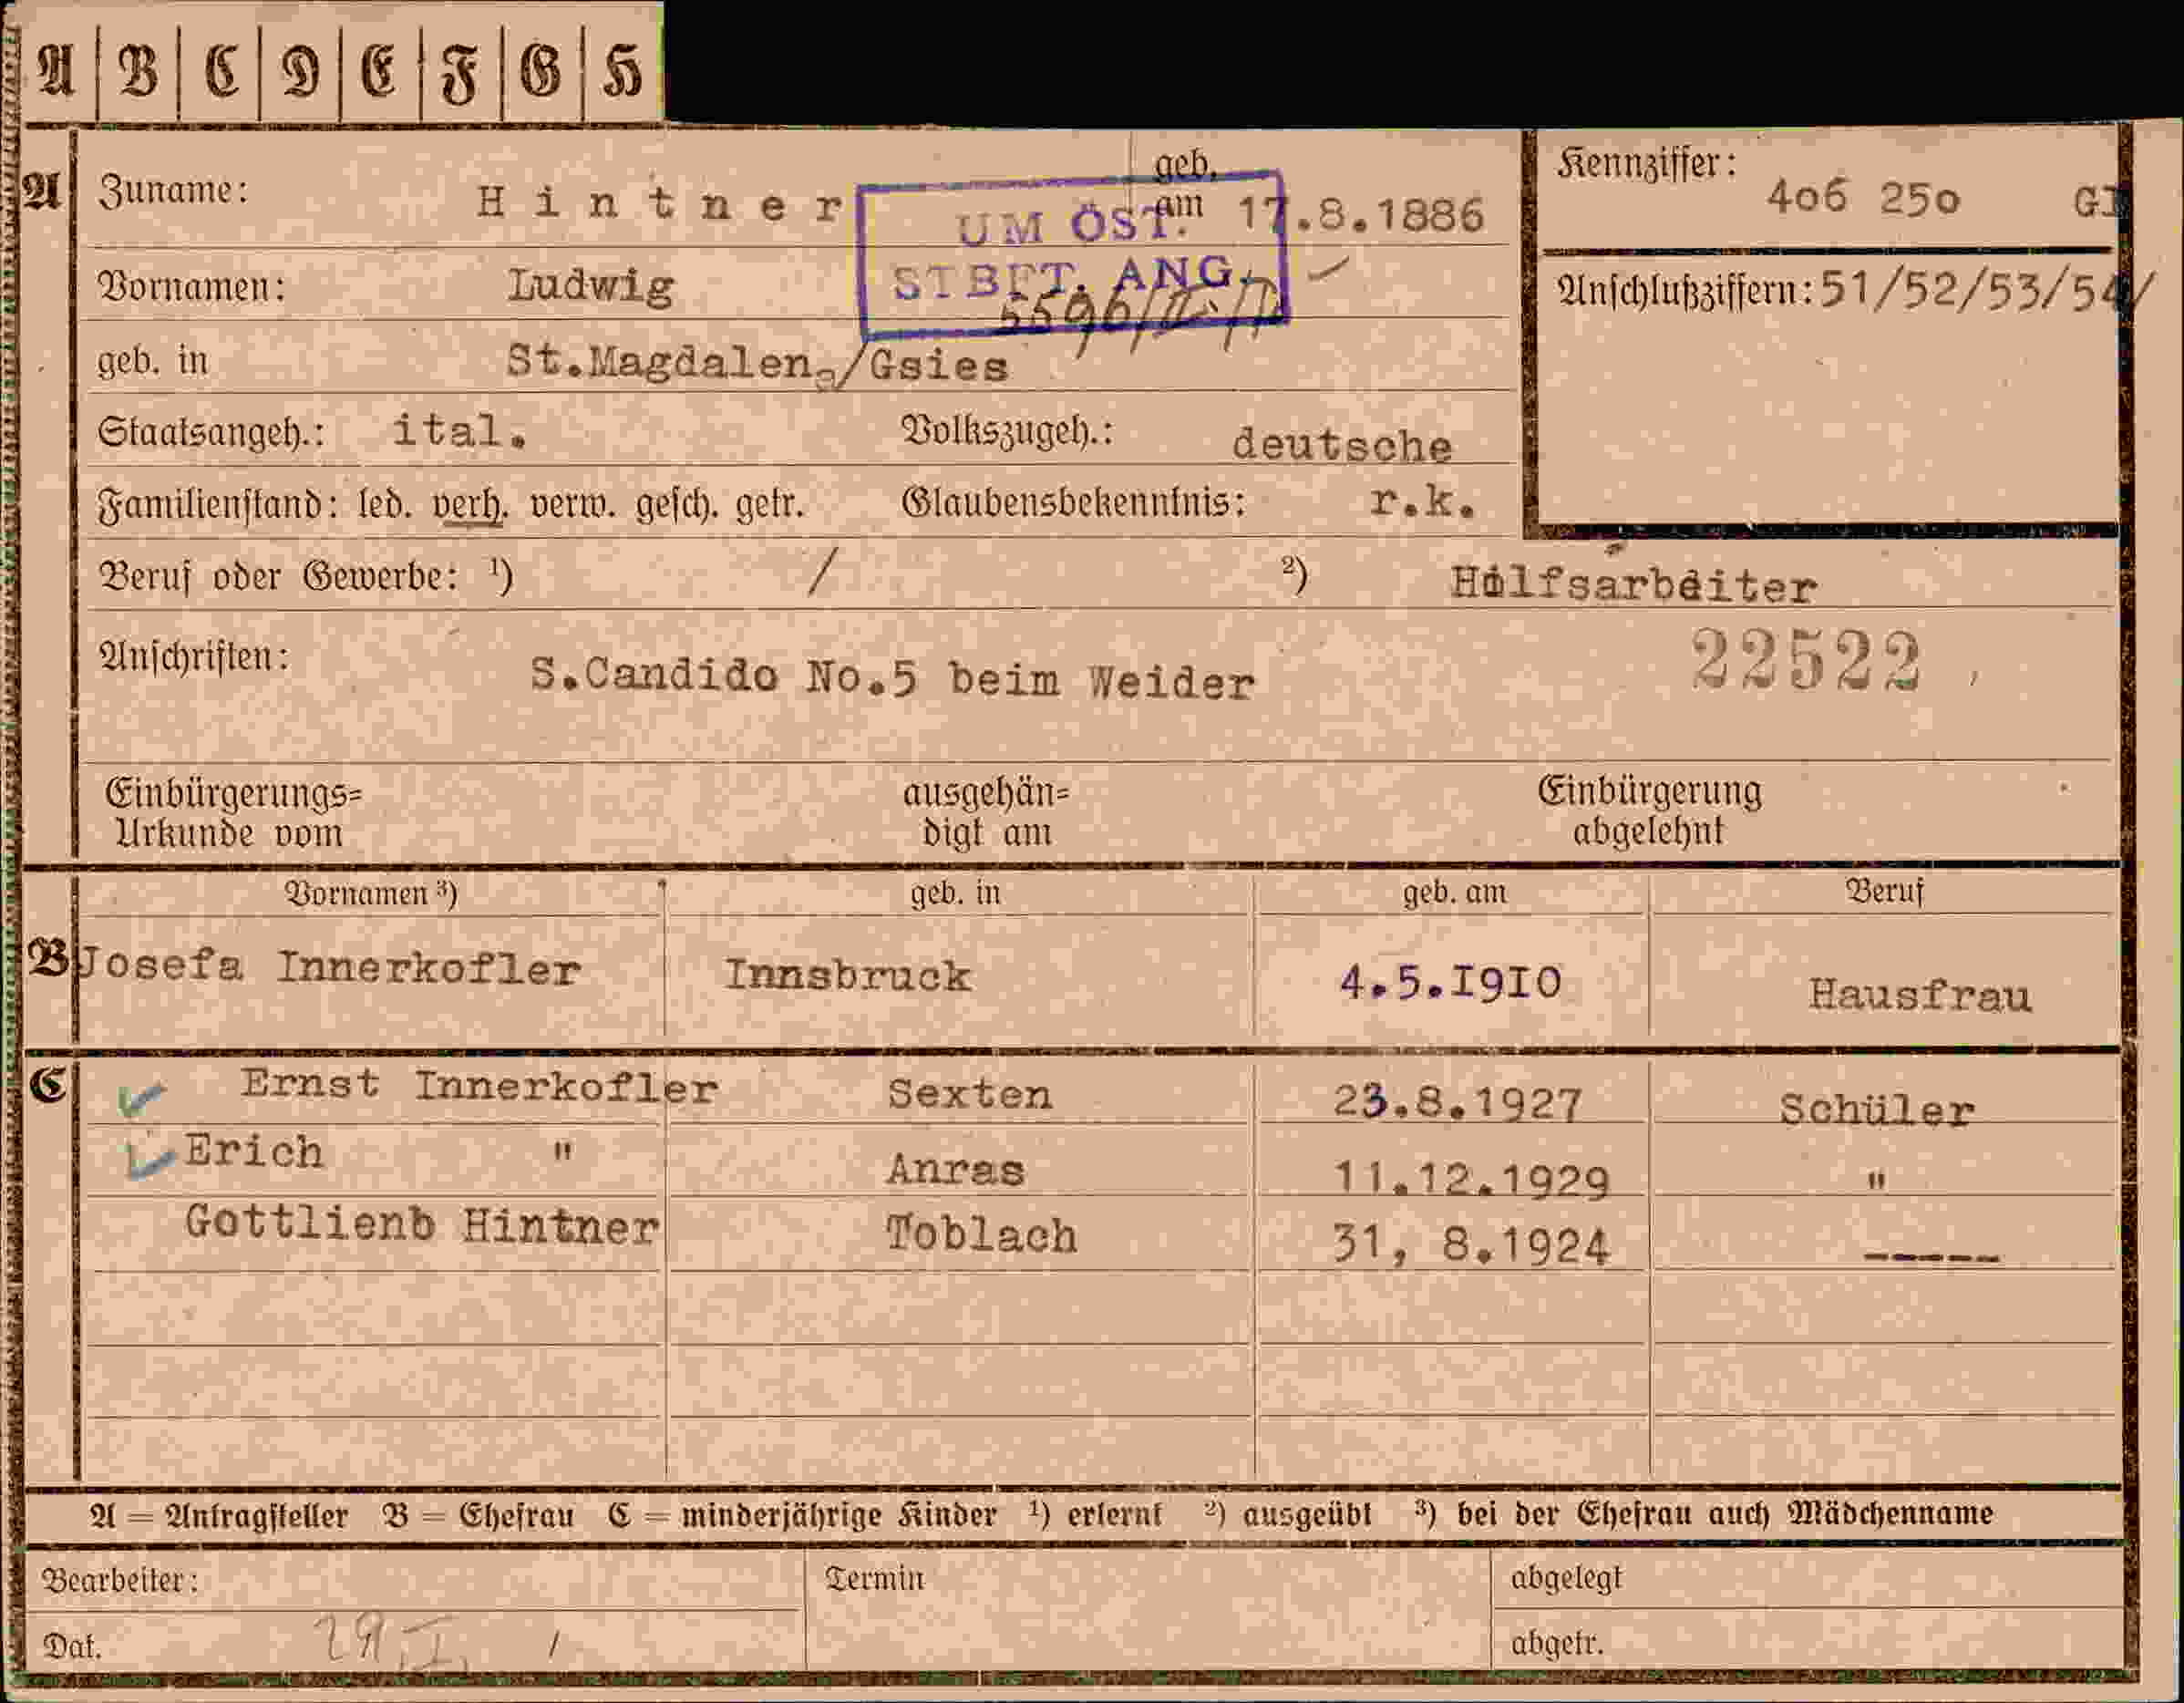 A | B | C | D | E | F | G | H
A Zuname: Hintner geb. am 17.8.1886
Kennziffer: 406 250 GI
UM ÖST.
STBFT. ANG.
Vornamen: Ludwig
Anschlußziffern: 51/52/53/54/
geb. in St.Magdalena/Gsies
Staatsangeh.: ital. Volkszugeh.: deutsche
Familienstand: led. verh. verw. gesch. getr. Glaubensbekenntnis: r.k.
Beruf oder Gewerbe: ¹) / ²) Hilfsarbeiter
Anschriften: S.Candido No.5 beim Weider
22522
Einbürgerungs= ausgehän= Einbürgerung
Urkunde vom digt am abgelehnt
Vornamen ³) geb. in geb. am Beruf
B Josefa Innerkofler Innsbruck 4.5.I9I0 Hausfrau
C Ernst Innerkofler Sexten 23.8.1927 Schüler
Erich " Anras 11.12.1929 "
Gottlienb Hintner Toblach 31, 8.1924 -----
A = Antragsteller B = Ehefrau C = minderjährige Kinder ¹) erlernt ²) ausgeübt ³) bei der Ehefrau auch Mädchenname
Bearbeiter: Termin abgelegt
Dat. 29.I. abgetr.